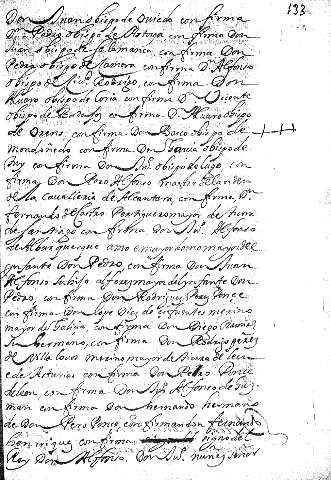 133
Don Juan obispo de oviedo con firma
Don Pedro obispo de Astorga con firma Don
Juan obispo de salamanca con firma Don
Pedro obispo de çamora con firma D. Alfonso
obispo de Rodrigo, con firma Don
Alvaro obispo de Coria con firma D. Vicente
obispo de Badajoz con firma D. Alvaro obispo
de Orens, con firma Don obispo de
mondoñedo con firma Don obispo de
tuy con firma Don Ju.º obispo de lugo, con
firma Don Pero Alfonso maestre de la orden
de la Cavalleria de Alcantara, con firma D.
Fernando Portiguero mayor de tierra
de Santiago con firma Don Ju.º Alfonso
de Alburquerque amo e mayordomo mayor del
ynfante Don Pedro, con firma Don Juan
Alfonso su hijo alferez mayor del ynfante Don
Pedro, con firma Don Rodrigo Perez Ponce
con firma Don lope Diez de cifuentes merino
mayor de Galicia, con firma Don Diego Ramirez
su hermano, con firma Don Rodrigo
de Villalovos merino mayor de tierra de leon
e de Asturias con firma Don Pedro Ponce
de leon, con firma Don Ju.º Alfonso de guz
man con firma Don hernando hermano
de Don Pero Ponce, con firma don fernando
henrriquez con firma signo del
Rey Don Alfonso. Don Ju.º nuñez señor